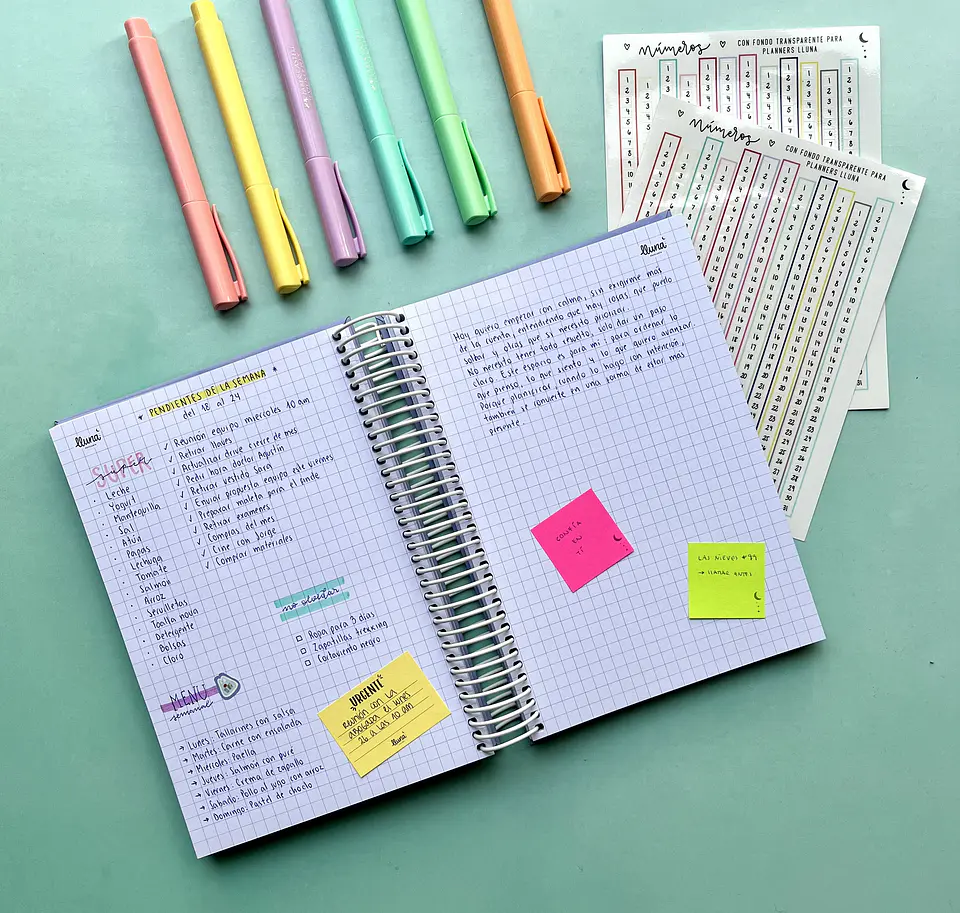 lluna
PENDIENTES DE LA SEMANA
del 18 al 24
SUPER
Leche
Yogurt
Mantequilla
Sal
Atún
Papas
Lechuga
Tomate
Salmón
Arroz
Servilletas
Toalla nova
Detergente
Bolsas
Cloro
✓ Reunión equipo miércoles 10 am
✓ Retirar llaves
✓ Actualizar drive cierre de mes
✓ Pedir hora doctor Agustín
✓ Retirar vestido Sara
✓ Enviar propuesta equipo este viernes
✓ Preparar maleta para el finde
✓ Retirar exámenes
✓ Compras del mes
✓ Cine con Jorge
✓ Comprar materiales
no olvidar
Ropa para 3 días
Zapatillas trekking
Cortaviento negro
MENÚ
semanal
→ Lunes: Tallarines con salsa
→ Martes: Carne con ensalada
→ Miércoles: Paella
→ Jueves: Salmón con puré
→ Viernes: Crema de zapallo
→ Sábado: Pollo al jugo con arroz
→ Domingo: Pastel de choclo
¡URGENTE!
Reunión con la
abogada el lunes
26 a las 10 am
lluna
lluna
Hoy quiero empezar con calma, sin exigirme más
de la cuenta, entendiendo que hay cosas que puedo
soltar y otras que sí necesito priorizar.
No necesito tener todo resuelto, solo dar un paso
claro. Este espacio es para mí: para ordenar lo
que pienso, lo que siento y lo que quiero avanzar.
Porque planificar, cuando lo hago con intención,
también se convierte en una forma de estar más
presente.
CONFÍA
EN
TÍ
LAS NIEVES #99
→ LLAMAR ANTES
Números
CON FONDO TRANSPARENTE PARA
PLANNERS LLUNA
Números
CON FONDO TRANSPARENTE PARA
PLANNERS LLUNA